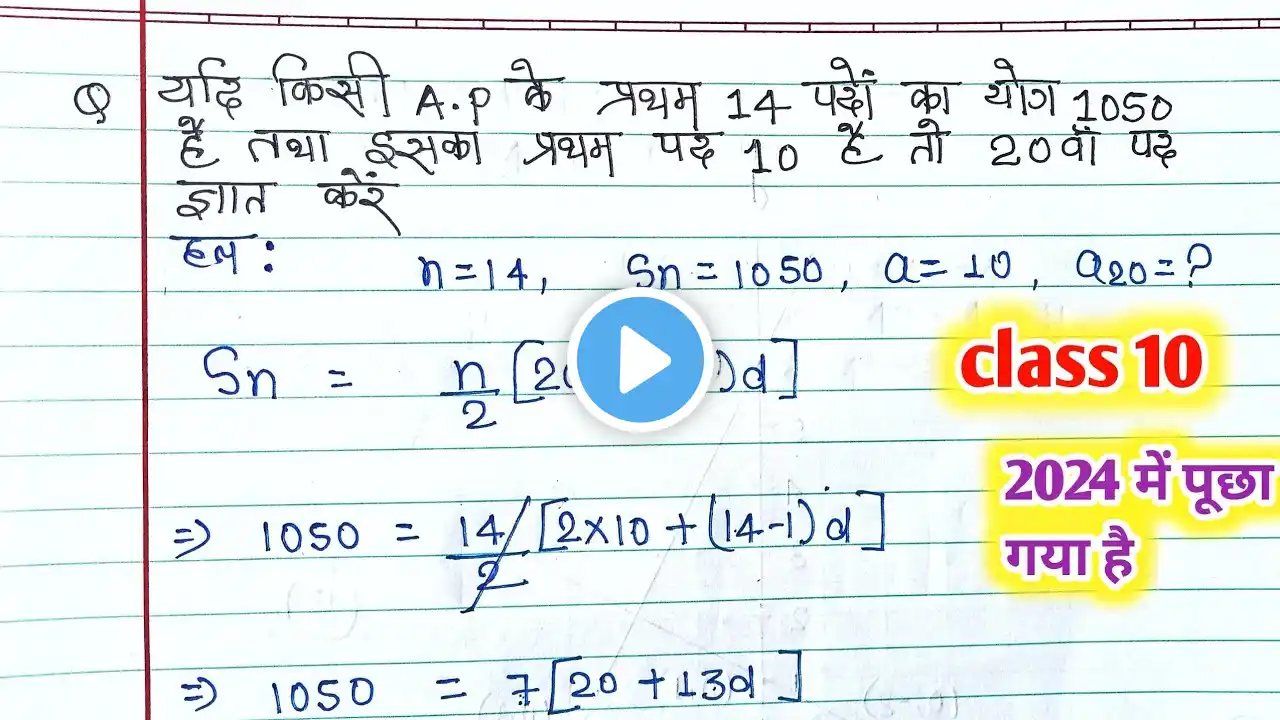 Q यदि किसी A.P के प्रथम 14 पदों का योग 1050
है तथा इसका प्रथम पद 10 है तो 20वाँ पद
ज्ञात करें
हल :
n=14, Sn=1050, a=10, a20=?
Sn = n/2 [2 )d]
class 10
2024 में पूछा
गया है
⇒ 1050 = 14/2 [2×10+(14-1)d]
⇒ 1050 = 7[20+13d]